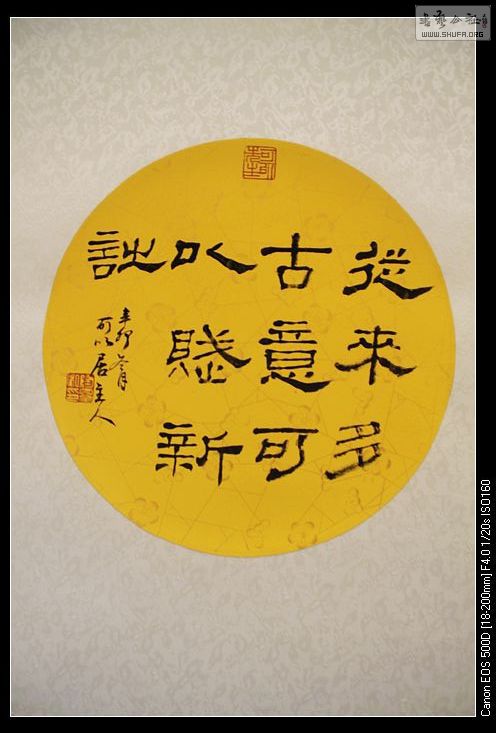 書藝公社
WWW.SHUFA.ORG
從來多
古意可
以賦新
詩
辛卯
可以居主人
Canon EOS 500D [18-200mm] F4.0 1/20s ISO160